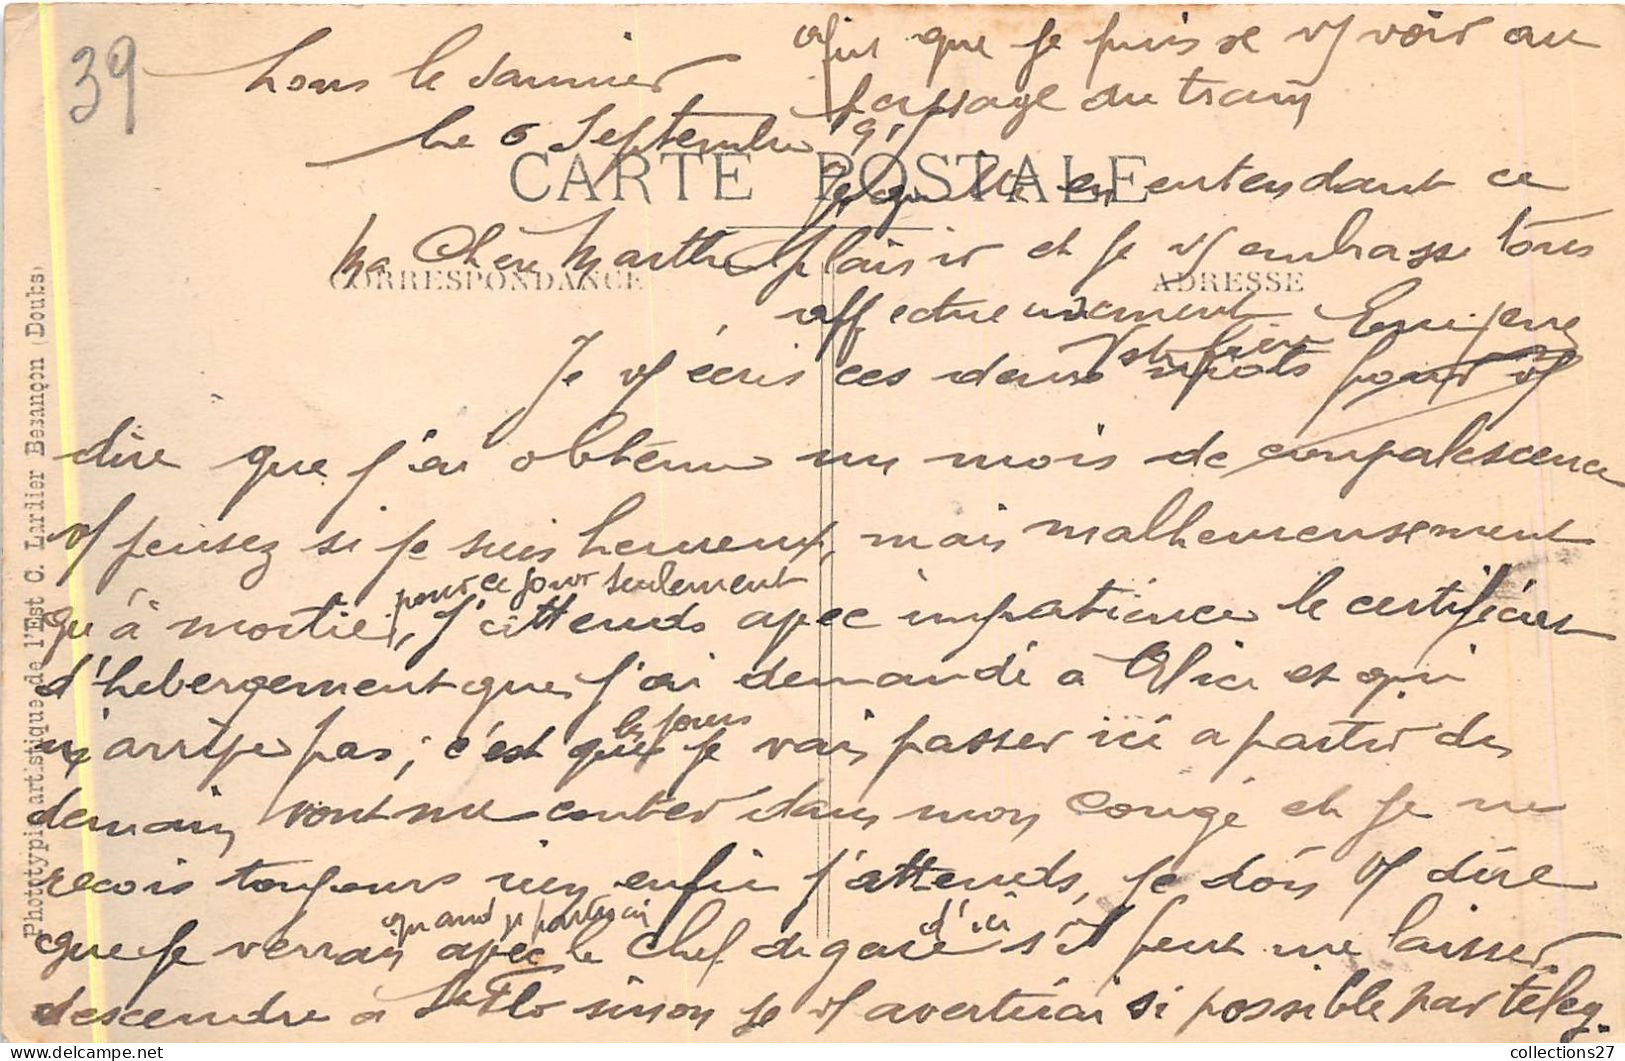 39
Lons le Saunier
le 6 Septembre
CARTE POSTALE
CORRESPONDANCE
ADRESSE
Ma Chère Marthe
Je vs écris ces deux mots pour vs
dire que j'ai obtenu un mois de convalescence
vs pensez si je suis heureux, mais malheureusement
qu'à moitié, pour ce jour seulement j'attends avec impatience le certificat
d'hébergement que j'ai demandé à Alice et qui
n'arrive pas; c'est que les jours que je vais passer ici a partir de
demain vont me compter dans mon congé et je ne
reçois toujours rien enfin j'attends, je dois vs dire
que je verrai quand je partirai avec le chef de gare d'ici s'il peut me laisser
descendre à St Flo sinon je vs avertirai si possible par téleg.
afin que je puisse vs voir au
passage du train
en entendant ce
plaisir et je vs embrasse tous
affectueusement
Phototypie artistique de l'Est C. Lardier Besançon (Doubs)
collections27